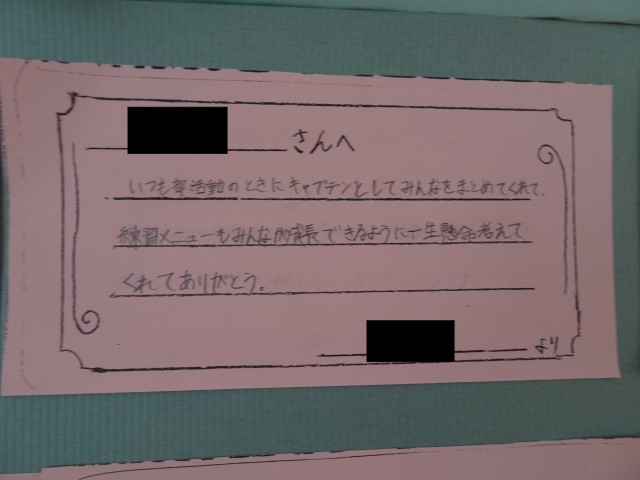 さんへ
いつも部活動のときにキャプテンとしてみんなをまとめてくれて、
練習メニューもみんなが成長できるように一生懸命考えて
くれてありがとう。
より